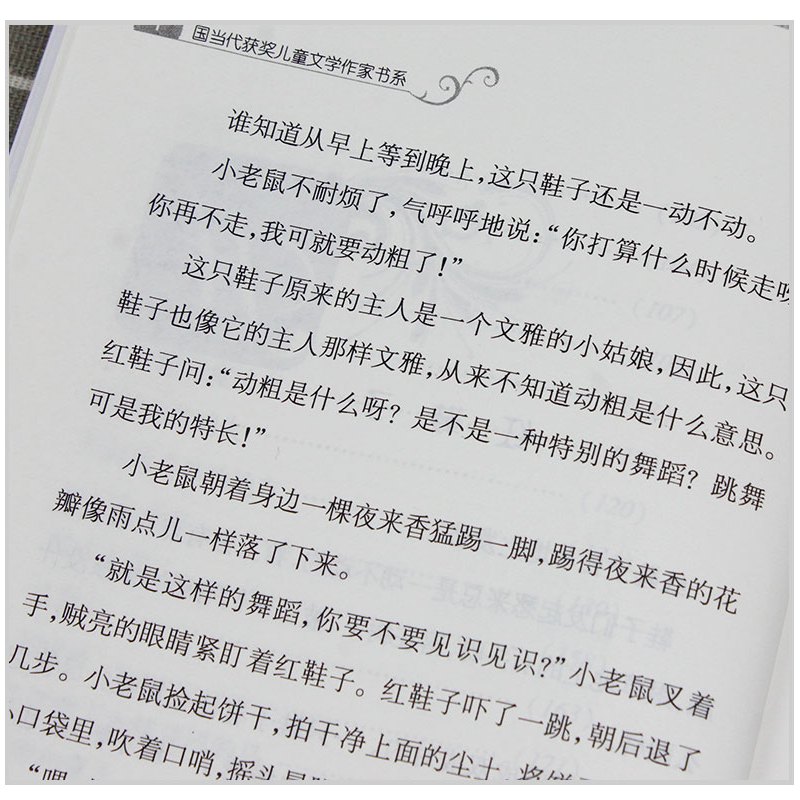 国当代获奖儿童文学作家书系
谁知道从早上等到晚上，这只鞋子还是一动不动。
小老鼠不耐烦了，气呼呼地说：“你打算什么时候走呀
你再不走，我可就要动粗了！”
这只鞋子原来的主人是一个文雅的小姑娘，因此，这只
鞋子也像它的主人那样文雅，从来不知道动粗是什么意思。
红鞋子问：“动粗是什么呀？是不是一种特别的舞蹈？跳舞
可是我的特长！”
小老鼠朝着身边一棵夜来香猛踢一脚，踢得夜来香的花
瓣像雨点儿一样落了下来。
“就是这样的舞蹈，你要不要见识见识？”小老鼠叉着
手，贼亮的眼睛紧盯着红鞋子。红鞋子吓了一跳，朝后退了
几步。小老鼠捡起饼干，拍干净上面的尘土，将饼
口袋里，吹着口哨，摇头晃
“嘿